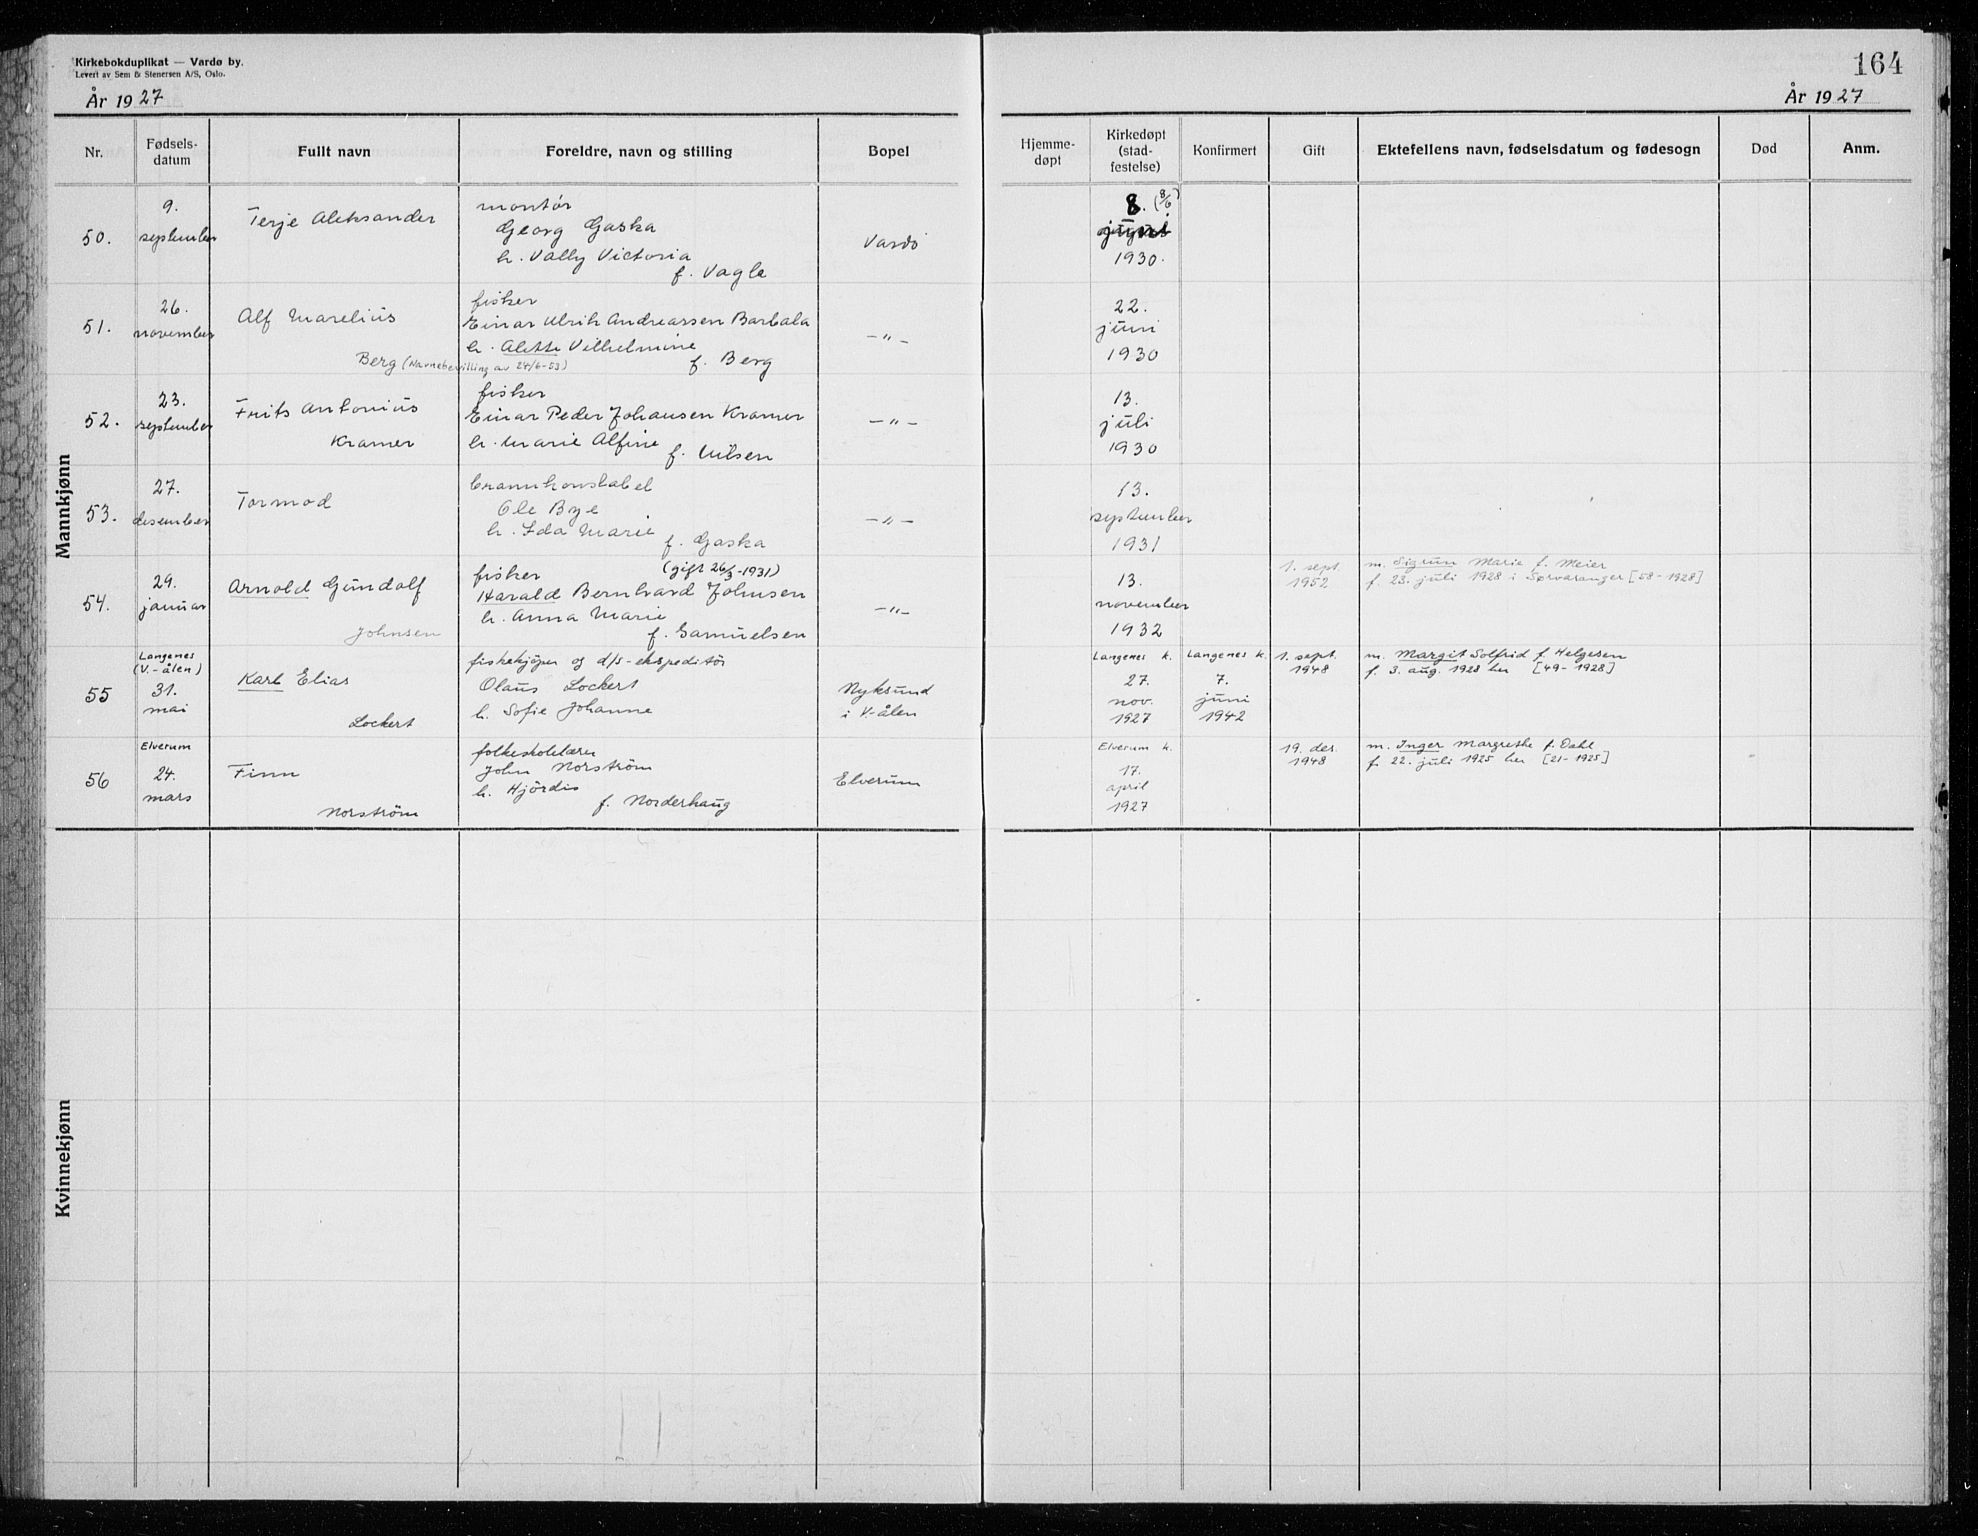 Kirkebokduplikat — Vardø by.
Levert av Sem & Stenersen A/S, Oslo.
År 1927
164
År 1927
Nr.
Fødsels-
datum
Fullt navn
Foreldre, navn og stilling
Bopel
Hjemme-
døpt
Kirkedøpt
(stad-
festelse)
Konfirmert
Gift
Ektefellens navn, fødselsdatum og fødesogn
Død
Anm.
Mannkjønn
50.
9.
september
Terje Aleksander
montör
Georg Gaska
h. Vally Victoria
f. Vagle
Vardö
8. (8/6)
juni
1930.
51.
26.
november
Alf Marelius
Berg (Navnebevilling av 24/6-53)
fisker
Einar Ulrik Andreassen Barbala
h. Alette Vilhelmine
f. Berg
— " —
22.
juni
1930
52.
23.
september
Frits Antonius
Kramer
fisker
Einar Peder Johansen Kramer
h. Marie Alfine
f. Nilsen
— " —
13.
juli
1930
53.
27.
desember
Tormod
brannkonstabel
Ole Bye
h. Ida Marie
f. Gaska
— " —
13.
september
1931
54.
29.
januar
Arnold Gundolf
Johnsen
fisker (gift 26/3-1931)
Harald Bernhard Johnsen
h. Anna Marie
f. Samuelsen
— " —
13.
november
1932
1. sept.
1952
m. Sigrun Marie f. Meier
f. 23. juli 1928 i Sørvaranger [58-1928]
55
Langenes
(V.-ålen)
31.
mai
Karl Elias
Lockert
fiskekjöper og d/s-ekspeditör
Olaus Lockert
h. Sofie Johanne
Nyksund
i V-ålen
Langenes k.
27.
nov.
1927
Langenes k.
7.
juni
1942
1. sept.
1948
m. Margit Solfrid f. Helgesen
f. 3. aug. 1928 her [49-1928]
56
Elverum
24.
mars
Finn
Norström
folkeskolelærer
John Norström
h. Hjördis
f. Norderhaug
Elverum
Elverum k.
17.
april
1927
19. des.
1948
m. Inger Margrethe f. Dahl
f. 22. juli 1925 her [21-1925]
Kvinnekjønn